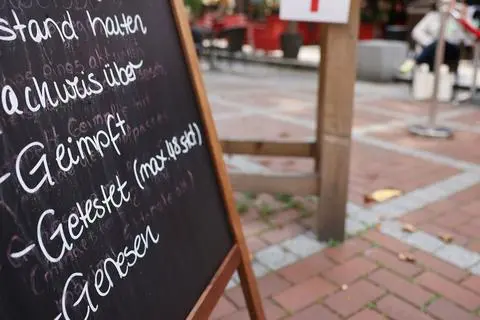 stand halten
achwris über
- Geimpft
- Getestet (max. 48 std)
- Genesen